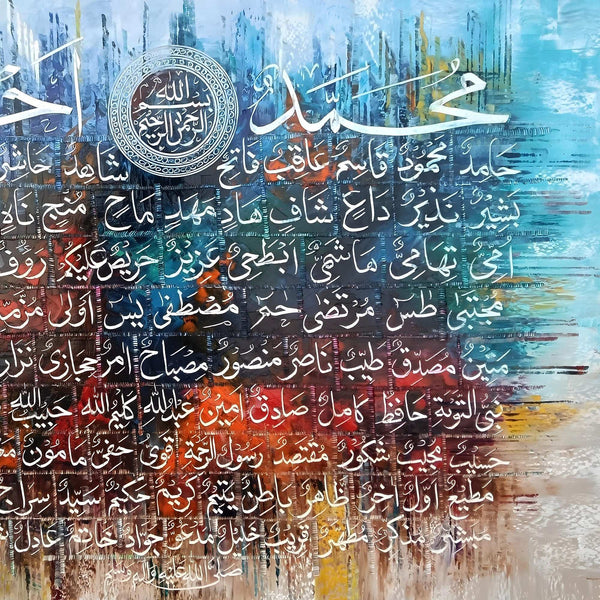 مُحَمَّدٌ
بسم الله الرحمن الرحيم
حَامِدٌ مَحْمُودٌ قَاسِمٌ عَاقِبٌ فَاتِحٌ شَاهِدٌ
بَشِيرٌ نَذِيرٌ دَاعٍ شَافٍ هَادٍ مَهْدٍ مَاحٍ مُنْجٍ نَاهٍ
أُمِّيٌّ تِهَامِيٌّ هَاشِمِيٌّ أَبْطَحِيٌّ عَزِيزٌ حَرِيصٌ عَلَيْكُمْ رَؤُفٌ
مُجْتَبَى طس مُرْتَضَى حم مُصْطَفَى يس أَوْلَى
مَتِينٌ مُصَدِّقٌ طَيِّبٌ نَاصِرٌ مَنْصُورٌ مِصْبَاحٌ آمِرٌ حِجَازِيٌّ
نَبِيُّ التَّوْبَةِ حَافِظٌ كَامِلٌ صَادِقٌ أَمِينٌ عَبْدُ اللهِ كَلِيمُ اللهِ حَبِيبُ اللهِ
حَسِيبٌ مُجِيبٌ شَكُورٌ مُقْتَصِدٌ رَسُولُ الرَّحْمَةِ قَوِيٌّ حَفِيٌّ مَأْمُونٌ
مُطِيعٌ أَوَّلٌ آخِرٌ ظَاهِرٌ بَاطِنٌ يَتِيمٌ كَرِيمٌ حَكِيمٌ سَيِّدٌ سِرَاجٌ
مُبَشِّرٌ مُذَكِّرٌ مُطَهَّرٌ قَرِيبٌ خَلِيلٌ مَدْعُوٌّ جَوَادٌ خَاتِمٌ عَادِلٌ
صلى الله عليه وآله وسلم